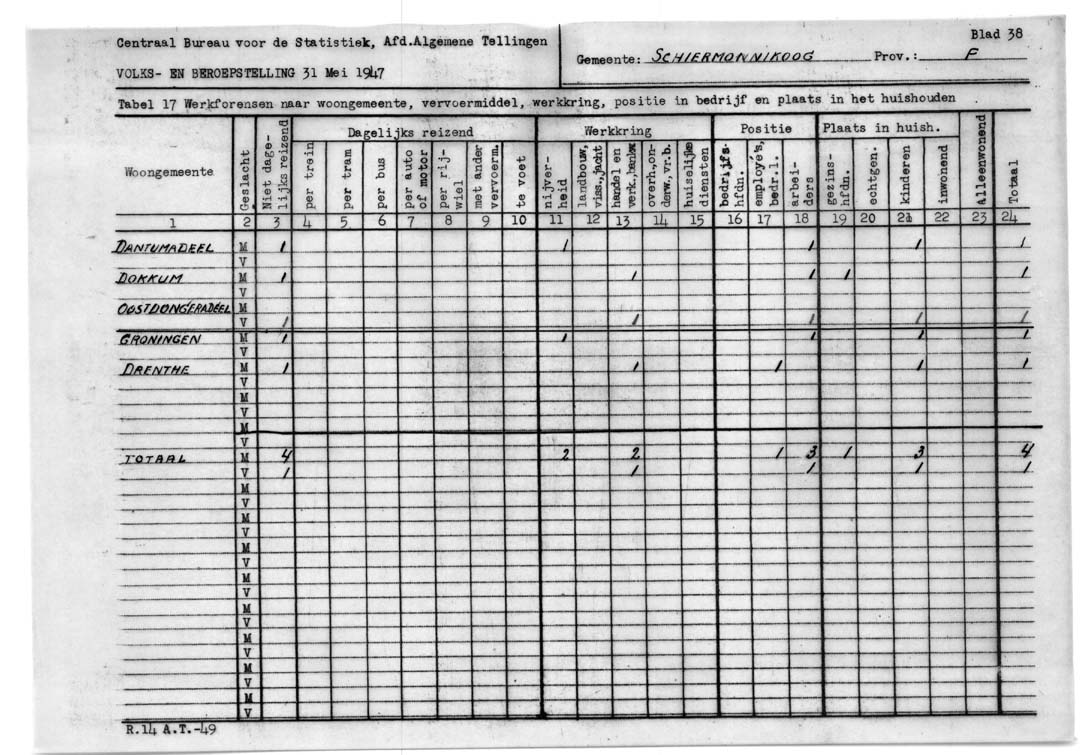 Centraal Bureau voor de Statistiek, Afd.Algemene Tellingen
VOLKS- EN BEROEPSTELLING 31 Mei 1947
Gemeente: SCHIERMONNIKOOG Prov.: F
Blad 38
Tabel 17 Werkforensen naar woongemeente, vervoermiddel, werkkring, positie in bedrijf en plaats in het huishouden
Woongemeente
Geslacht
Niet dage-
lijks reizend
Dagelijks reizend
per trein
per tram
per bus
per auto
of motor
per rij-
wiel
met ander
vervoerm.
te voet
Werkkring
nijver-
heid
landbouw,
viss.,jacht
handel en
verk.,bankw
overh.,on-
derw.,vr.b.
huiselijke
diensten
Positie
bedrijfs-
hfdn.
employé's,
bedr.l.
arbei-
ders
Plaats in huish.
gezins-
hfdn.
echtgen.
kinderen
inwonend
Alleenwonend
Totaal
1 2 3 4 5 6 7 8 9 10 11 12 13 14 15 16 17 18 19 20 21 22 23 24
DANTUMADEEL M 1 1 1 1 1
V
DOKKUM M 1 1 1 1 1
V
OOSTDONGERADEEL M
V 1 1 1 1 1
GRONINGEN M 1 1 1 1 1
V
DRENTHE M 1 1 1 1 1
V
M
V
M
V
TOTAAL M 4 2 2 1 3 1 3 4
V 1 1 1 1 1
M
V
M
V
M
V
M
V
M
V
M
V
M
V
M
V
R.14 A.T.-49